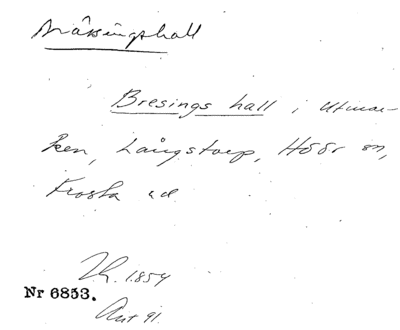 Bråsingshall
Bresings hall i Utmar-
ken, Långstorp, Höör sn,
Frosta hd
1854
Nr 6853.
Avt 91.